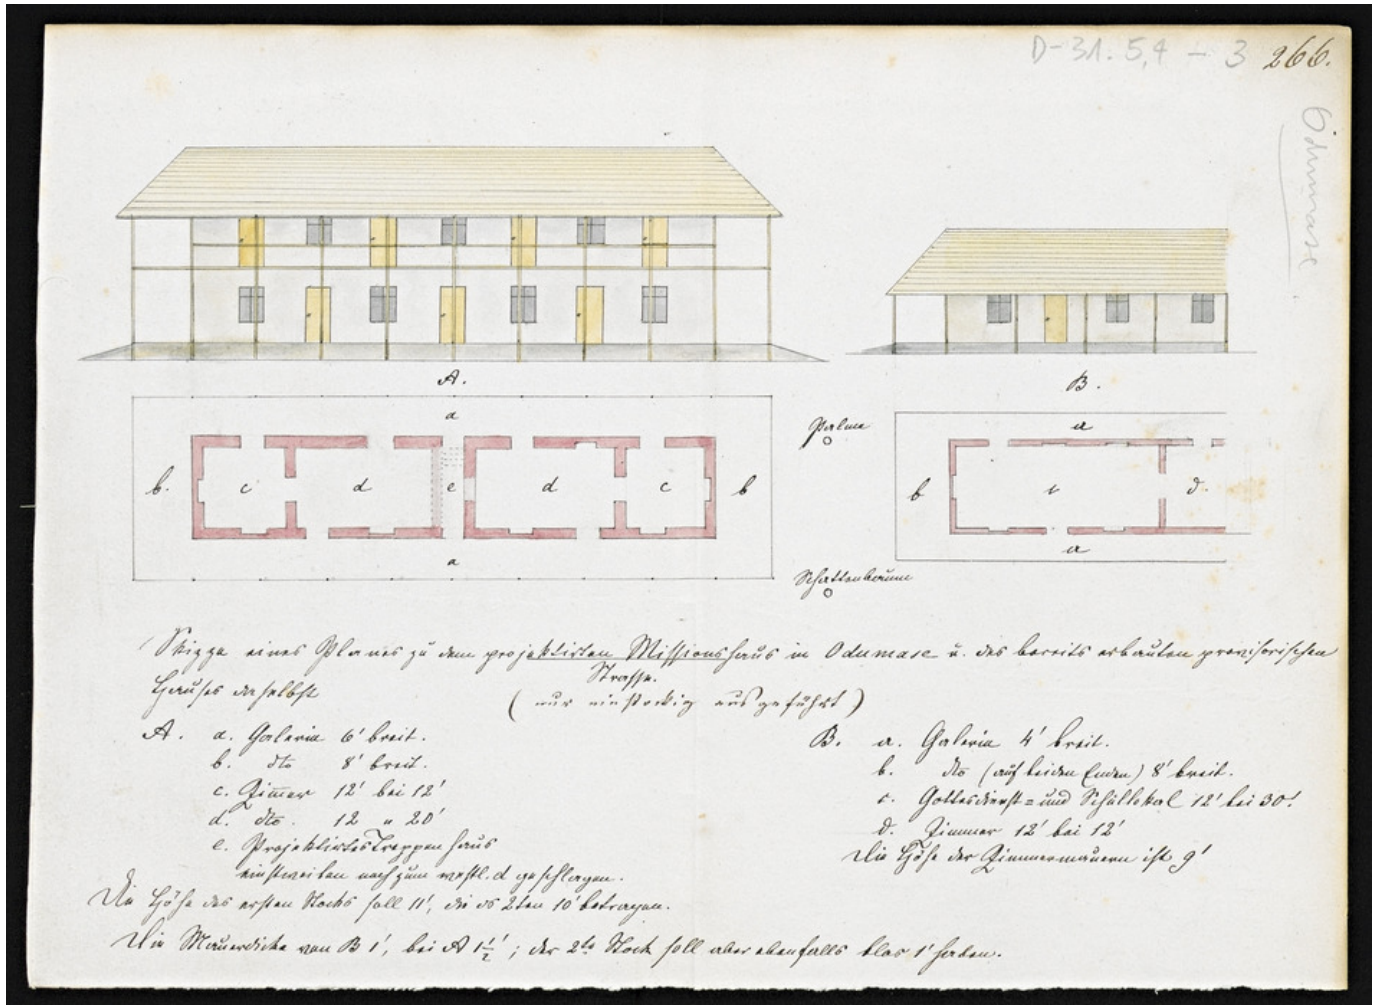 D-31. 5,4 - 3 266.
Odumase
A.
B.
a
a
Palme
b. c d e d c b
b c d.
a
a
Schattenbäume
Skizze eines Planes zu dem projektirten Missionshaus in Odumase u. des bereits erbauten provisorischen
Hauses daselbst
Strasse.
( nur einstockig ausgeführt )
A. a. Galerie 6' breit.
b. dto 8' breit.
c. Zimer 12' bei 12'
d. dto. 12 " 20'
e. Projektirtes Treppenhaus
einstweilen noch zum westl. d geschlagen.
Die Höhe des ersten Stocks soll 11', die ds 2ten 10' betragen.
Die Mauerdicke von B 1', bei A 1½'; der 2te Stock soll aber ebenfalls blos 1' haben.
B. a. Galerie 4' breit.
b. dto (auf beiden Enden) 8' breit.
c. Gottesdienst= und Schullokal 12' bei 30'.
d. Zimmer 12' bei 12'
Die Höhe der Zimmermauern ist 9'